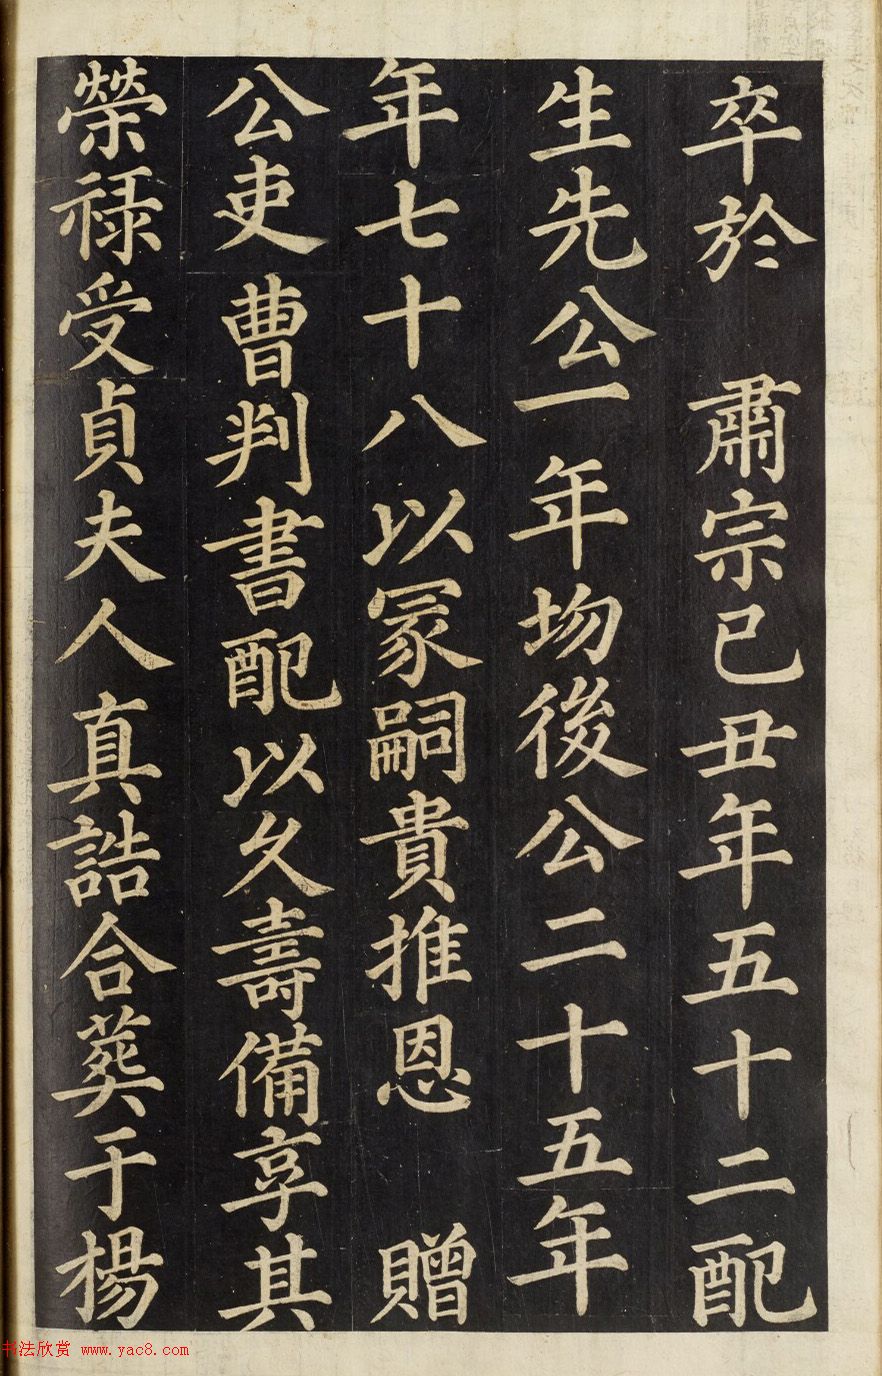 卒於　肅宗己丑年五十二配
生先公一年歾後公二十五年
年七十八以冢嗣貴推恩　贈
公吏曹判書配以久壽備享其
榮祿受貞夫人真誥合葬于楊
书法欣赏 www.yac8.com